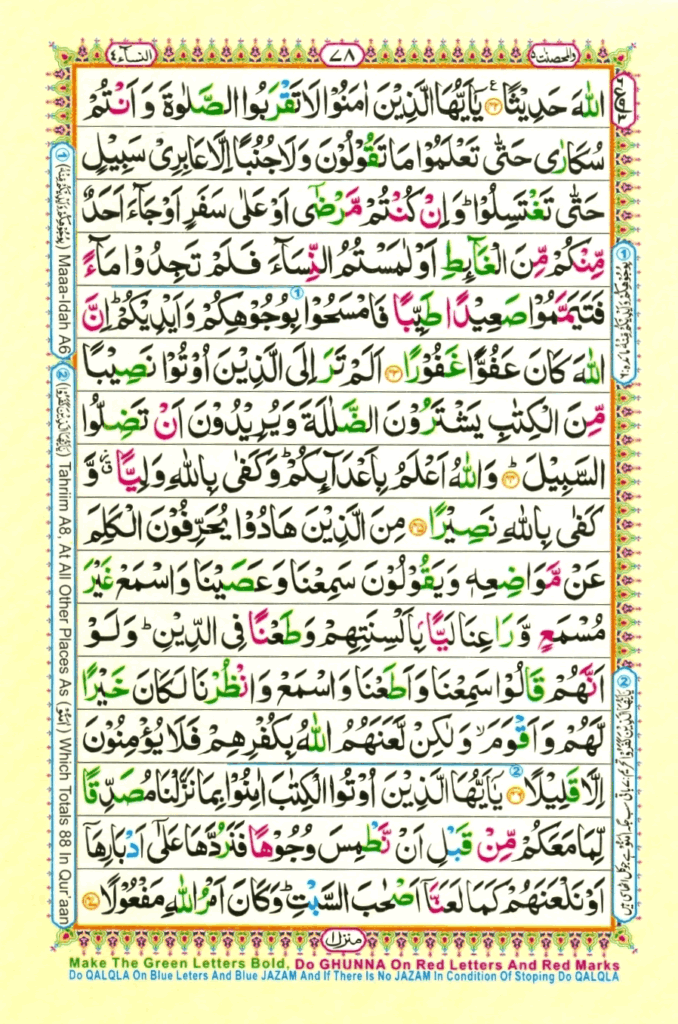 النسآء ٤
٧٨
والمحصنت ٥
اللهَ حَدِيْثًا ۝٤٢ يٰۤاَيُّهَا الَّذِيْنَ اٰمَنُوْا لَا تَقْرَبُوا الصَّلٰوةَ وَ اَنْتُمْ
سُكَارٰى حَتّٰى تَعْلَمُوْا مَا تَقُوْلُوْنَ وَلَا جُنُبًا اِلَّا عَابِرِىْ سَبِيْلٍ
حَتّٰى تَغْتَسِلُوْا ؕ وَاِنْ كُنْتُمْ مَّرْضٰۤى اَوْ عَلٰى سَفَرٍ اَوْ جَآءَ اَحَدٌ
مِّنْكُمْ مِّنَ الْغَآئِطِ اَوْ لٰمَسْتُمُ النِّسَآءَ فَلَمْ تَجِدُوْا مَآءً
فَتَيَمَّمُوْا صَعِيْدًا طَيِّبًا فَامْسَحُوْا بِوُجُوْهِكُمْ وَاَيْدِيْكُمْ ؕ اِنَّ
اللهَ كَانَ عَفُوًّا غَفُوْرًا ۝٤٣ اَلَمْ تَرَ اِلَى الَّذِيْنَ اُوْتُوْا نَصِيْبًا
مِّنَ الْكِتٰبِ يَشْتَرُوْنَ الضَّلٰلَةَ وَيُرِيْدُوْنَ اَنْ تَضِلُّوا
السَّبِيْلَ ؕ ۝٤٤ وَاللهُ اَعْلَمُ بِاَعْدَآئِكُمْ ؕ وَكَفٰى بِاللهِ وَلِيًّا ٭ۗ وَّ
كَفٰى بِاللهِ نَصِيْرًا ۝٤٥ مِنَ الَّذِيْنَ هَادُوْا يُحَرِّفُوْنَ الْكَلِمَ
عَنْ مَّوَاضِعِهٖ وَيَقُوْلُوْنَ سَمِعْنَا وَعَصَيْنَا وَاسْمَعْ غَيْرَ
مُسْمَعٍ وَّرَاعِنَا لَيًّۢا بِاَلْسِنَتِهِمْ وَطَعْنًا فِى الدِّيْنِ ؕ وَلَوْ
اَنَّهُمْ قَالُوْا سَمِعْنَا وَاَطَعْنَا وَاسْمَعْ وَانْظُرْنَا لَكَانَ خَيْرًا
لَّهُمْ وَاَقْوَمَ ۙ وَلٰكِنْ لَّعَنَهُمُ اللهُ بِكُفْرِهِمْ فَلَا يُؤْمِنُوْنَ
اِلَّا قَلِيْلًا ۝٤٦ يٰۤاَيُّهَا الَّذِيْنَ اُوْتُوا الْكِتٰبَ اٰمِنُوْا بِمَا نَزَّلْنَا مُصَدِّقًا
لِّمَا مَعَكُمْ مِّنْ قَبْلِ اَنْ نَّطْمِسَ وُجُوْهًا فَنَرُدَّهَا عَلٰۤى اَدْبَارِهَاۤ
اَوْ نَلْعَنَهُمْ كَمَا لَعَنَّاۤ اَصْحٰبَ السَّبْتِ ؕ وَكَانَ اَمْرُ اللهِ مَفْعُوْلًا ۝٤٧
منزل ١
① (بِوُجُوْهِكُمْ وَاَيْدِيْكُمْ مِّنْهُ) Maaa-Idah A6
② (يٰۤاَيُّهَا الَّذِيْنَ كَفَرُوْا) Tahriim A8, At All Other Places As (اٰمَنُوْا) Which Totals 88 In Qur'aan
Make The Green Letters Bold. Do GHUNNA On Red Letters And Red Marks
Do QALQLA On Blue Leters And Blue JAZAM And If There Is No JAZAM In Condition Of Stoping Do QALQLA